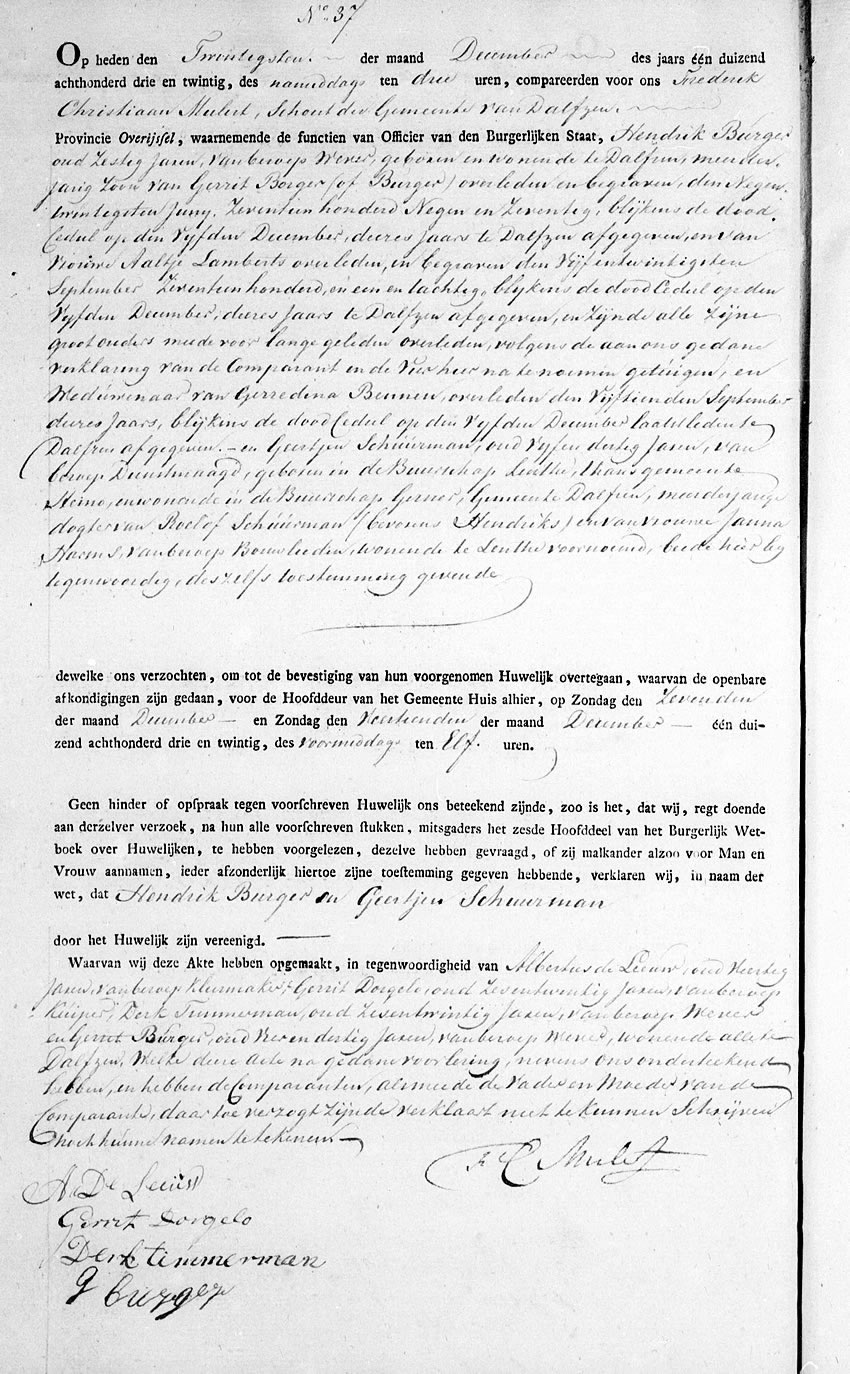 No. 37
Op heden den Twintigsten der maand December des jaars één duizend
achthonderd drie en twintig, des nameddags ten drie uren, compareerden voor ons Frederik
Christiaan Mulert, Schout der Gemeente van Dalfzen.
Provincie Overijsel, waarnemende de functien van Officier van den Burgerlijken Staat, Hendrik Burger
oud Zestig Jaren, van beroep Wever, geboren en wonende te Dalfzen, meerder-
jarig Zoon van Gerrit Borger (of Burger) overleden en begraven, den Negen-
twintigsten Juny Zeventienhonderd Negen en Zeventig, blijkens de dood
Cedul op den Vyfden December, dezes Jaars te Dalfzen afgegeven, en van
Vrouwe Aaltje Lamberts overleden, en begraven den Vijf en twintigsten
September Zeventienhonderd, en een en tachtig, blijkens de dood Cedul op den
Vyfden December, dezes Jaars te Dalfzen afgegeven, en Zijnde alle Zijne
grootouders mede voor lange geleden overleden, volgens de aan ons gedane
verklaring van de Comparant en de Vier hier na te noemen getuigen, en
Weduwenaar van Gerredina Bennen, overleden den Vijftienden September
dezes Jaars, blijkens de dood Cedul op den Vyfden December laatstleden te
Dalfzen afgegeven. – en Geertjen Schuurman, oud Vyf en dertig Jaren, van
beroep Dienstmaagd, geboren in de Buurschap Lenthe, thans gemeente
Heino, en wonende in de Buurschap Gerner, Gemeente Dalfzen, meerderjarige
dogter van Roelof Schuurman (bevorens Hendriks) en van vrouwe Janna
Harms, van beroep Bouwlieden, wonende te Lenthe voornoemd, beide hier bij
tegenwoordig, des zelfs toestemming gevende
dewelke ons verzochten, om tot de bevestiging van hun voorgenomen Huwelijk overtegaan, waarvan de openbare
afkondigingen zijn gedaan, voor de Hoofddeur van het Gemeente Huis alhier, op Zondag den Zevenden
der maand December en Zondag den Veertienden der maand December één dui-
zend achthonderd drie en twintig, des voormiddags ten Elf uren.
Geen hinder of opspraak tegen voorschreven Huwelijk ons beteekend zijnde, zoo is het, dat wij, regt doende
aan derzelver verzoek, na hun alle voorschreven stukken, mitsgaders het zesde Hoofddeel van het Burgerlijk Wet-
boek over Huwelijken, te hebben voorgelezen, dezelve hebben gevraagd, of zij malkander alzoo voor Man en
Vrouw aannamen, ieder afzonderlijk hiertoe zijne toestemming gegeven hebbende, verklaren wij, in naam der
wet, dat Hendrik Burger en Geertjen Schuurman
door het Huwelijk zijn vereenigd.
Waarvan wij deze Akte hebben opgemaakt, in tegenwoordigheid van Albertus de Leeuw, oud Veertig
Jaren, van beroep Kleermaker, Gerrit Dorgelo, oud Zesentwintig Jaren, van beroep
Kuiper, Derk Timmerman, oud Zesentwintig Jaren, van beroep Wever
en Gerret Burger, oud Vier en dertig Jaren, van beroep Wever, wonende alle te
Dalfzen, Welke deze Acte na gedane voorlezing, nevens ons onderteekend
hebben, en hebben de Comparanten, alsmede de Vader en Moeder van de
Comparante, daar toe verzogt zijnde verklaart niet te kunnen Schrijven
noch hunne namen te tekenen.
F C Mulert
A De Leeuw
Gerret Dorgelo
Derk timmerman
g burger